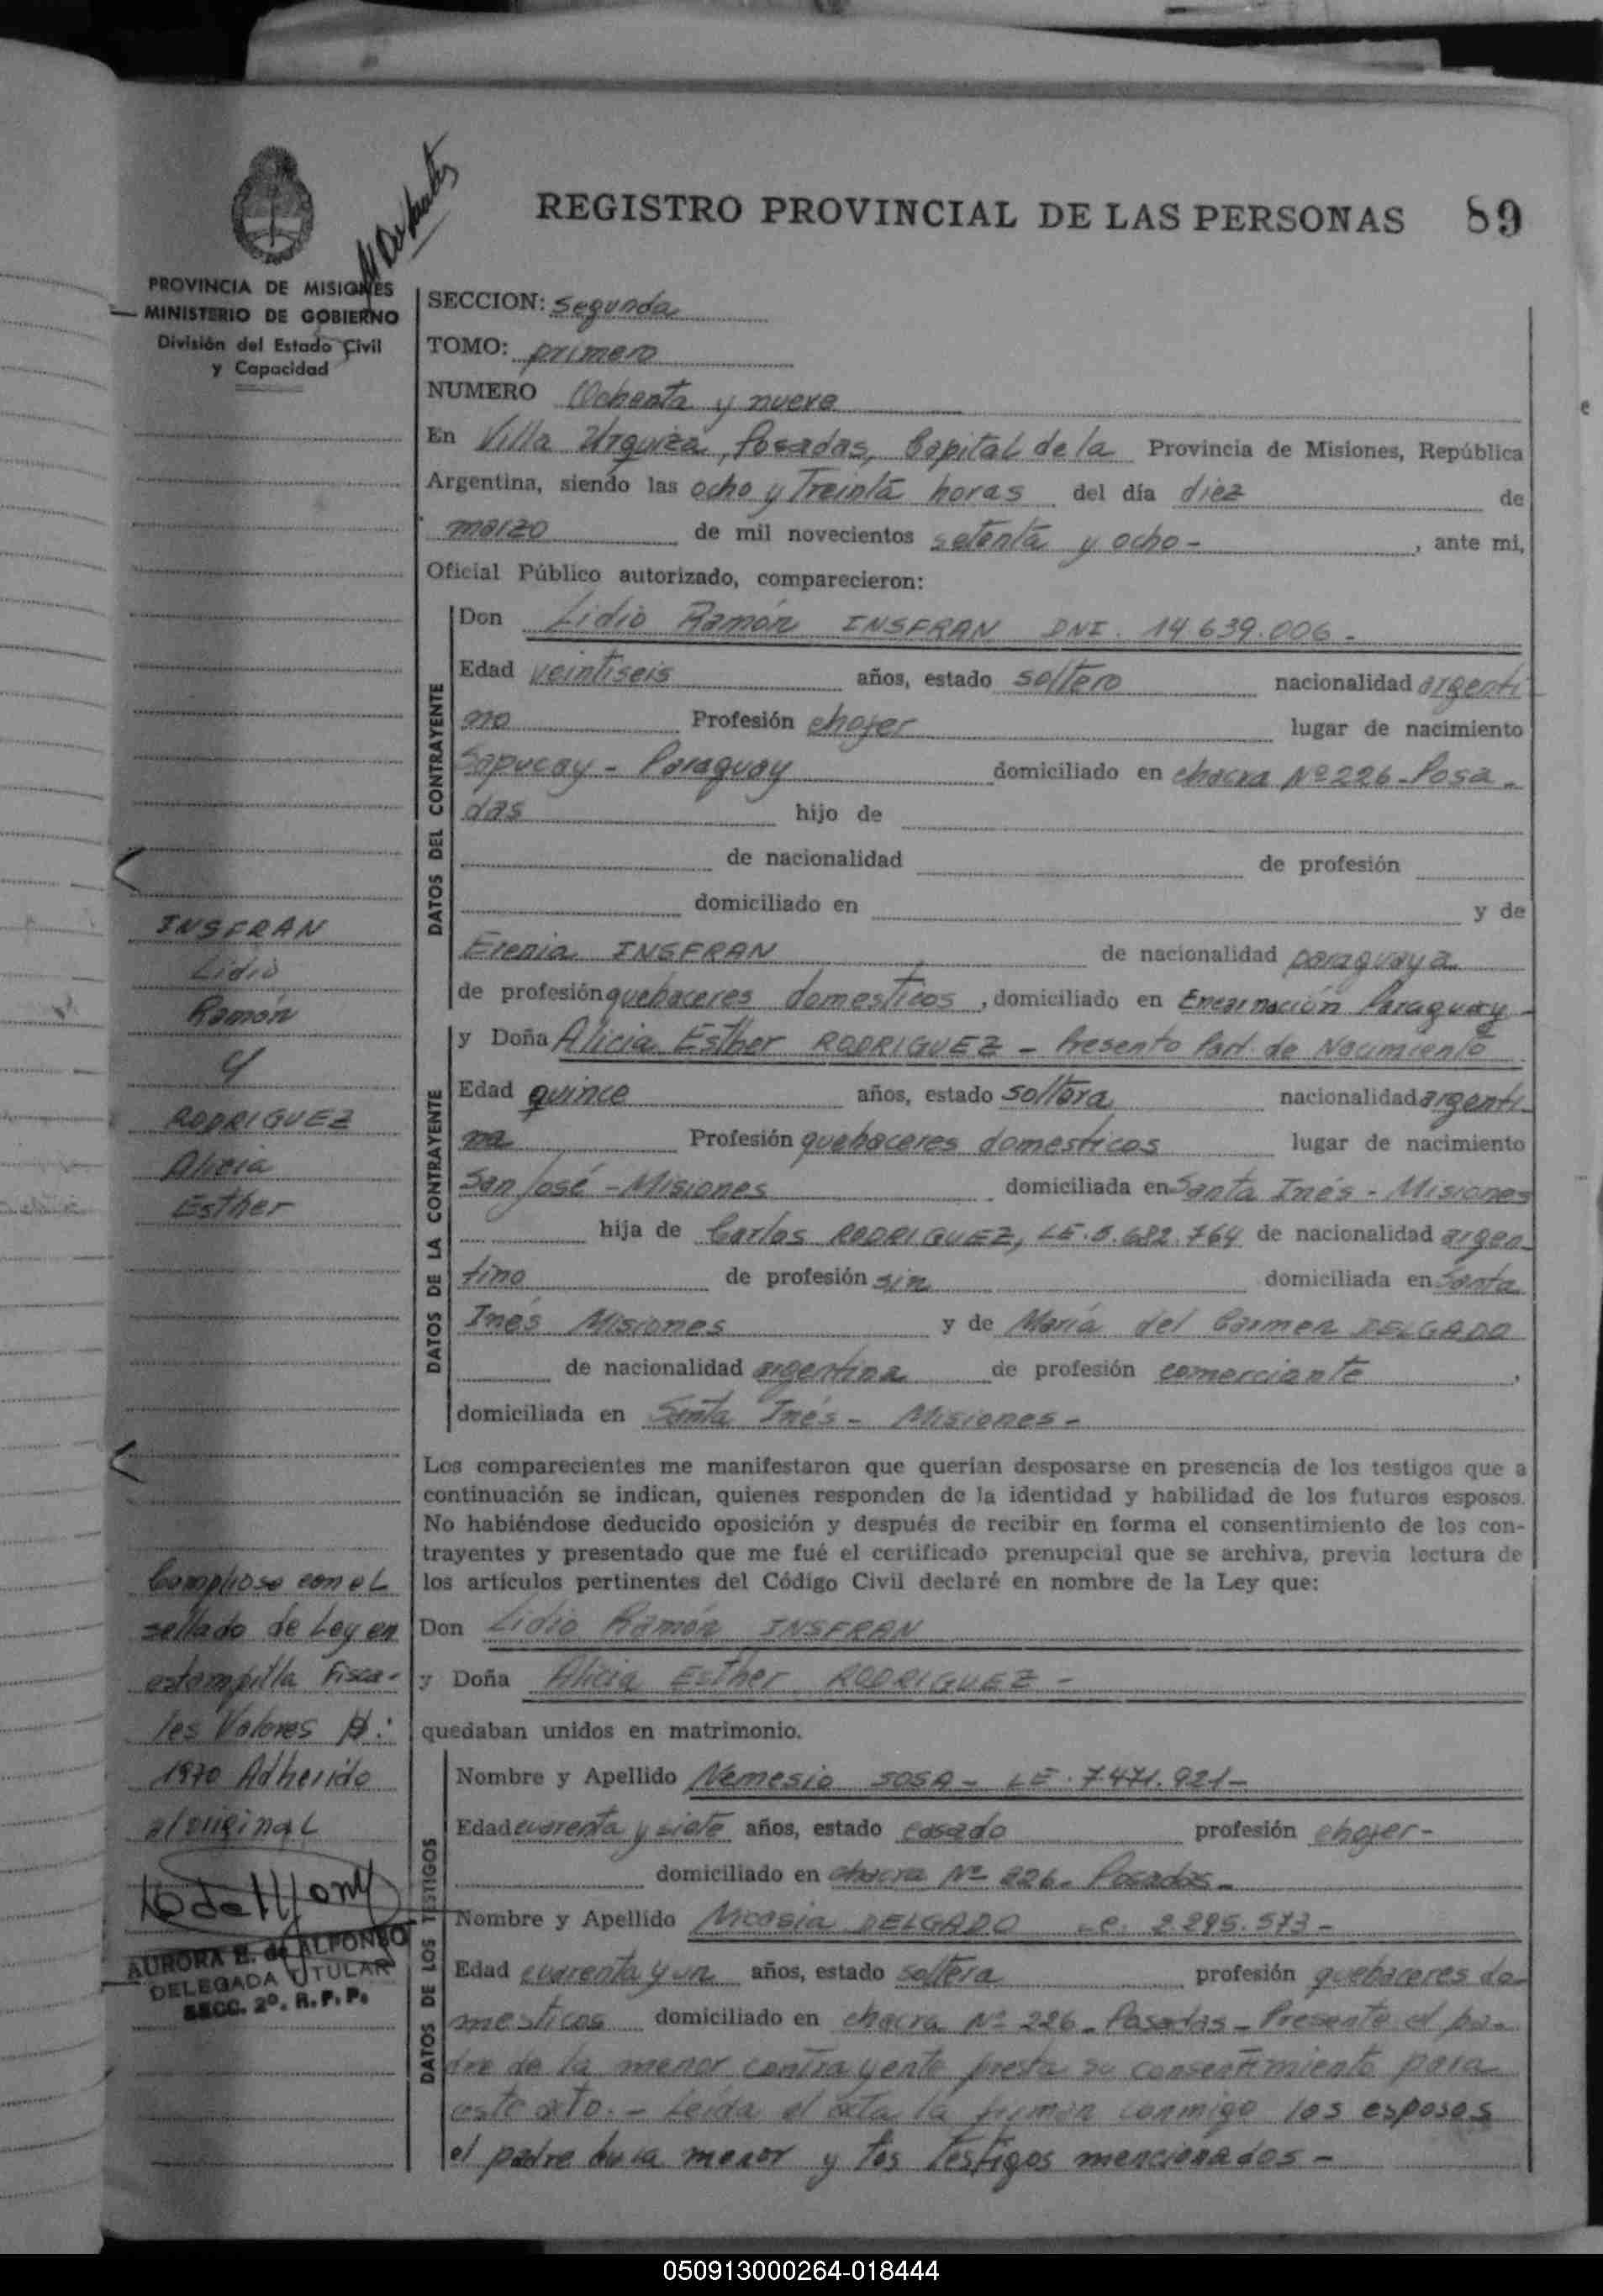 REGISTRO PROVINCIAL DE LAS PERSONAS 89
PROVINCIA DE MISIONES
MINISTERIO DE GOBIERNO
División del Estado Civil
y Capacidad
SECCION: Segunda
TOMO: primero
NUMERO Ochenta y nueve
En Villa Urquiza, Posadas, Capital de la Provincia de Misiones, República
Argentina, siendo las ocho y Treinta horas del día diez de
marzo de mil novecientos setenta y ocho - , ante mi,
Oficial Público autorizado, comparecieron:
DATOS DEL CONTRAYENTE
Don Lidio Ramón INSFRAN DNI. 14.639.006 -
Edad veintiseis años, estado soltero nacionalidad argenti
no Profesión chofer lugar de nacimiento
Sapucay - Paraguay domiciliado en chacra Nº 226 - Posa -
das hijo de
de nacionalidad de profesión
domiciliado en y de
Erenia INSFRAN de nacionalidad paraguaya
de profesión quehaceres domesticos , domiciliado en Encarnación Paraguay -
DATOS DE LA CONTRAYENTE
y Doña Alicia Esther RODRIGUEZ - Presento Part. de Nacimiento
Edad quince años, estado soltera nacionalidad argenti -
na Profesión quehaceres domesticos lugar de nacimiento
San José - Misiones domiciliada en Santa Inés - Misiones
hija de Carlos RODRIGUEZ, LE. 5.682.764 de nacionalidad argen -
tino de profesión sin domiciliada en Santa
Inés Misiones y de María del Carmen DELGADO
de nacionalidad argentina de profesión comerciante ,
domiciliada en Santa Inés - Misiones -
Los comparecientes me manifestaron que querían desposarse en presencia de los testigos que a
continuación se indican, quienes responden de la identidad y habilidad de los futuros esposos.
No habiéndose deducido oposición y después de recibir en forma el consentimiento de los con-
trayentes y presentado que me fué el certificado prenupcial que se archiva, previa lectura de
los artículos pertinentes del Código Civil declaré en nombre de la Ley que:
Don Lidio Ramón INSFRAN
y Doña Alicia Esther RODRIGUEZ -
quedaban unidos en matrimonio.
DATOS DE LOS TESTIGOS
Nombre y Apellido Nemesio SOSA - LE. 7.471.921 -
Edad cuarenta y siete años, estado casado profesión chofer -
domiciliado en chacra Nº 226 - Posadas -
Nombre y Apellido Nicasia DELGADO LC. 2.295.573 -
Edad cuarenta y un años, estado soltera profesión quehaceres do -
mesticos domiciliado en chacra Nº 226 - Posadas - Presente el pa -
dre de la menor contrayente presta su consentimiento para
este acto. - Leída el acta la firman conmigo los esposos
el padre de la menor y los testigos mencionados -
INSFRAN
Lidio
Ramón
y
RODRIGUEZ
Alicia
Esther
Campliose con el
sellado de Ley en
estampilla Fisca -
les Valores $:
1970 Adherido
al original
AURORA E. de ALFONSO
DELEGADA TITULAR
SECC. 2º. R. P. P.
050913000264-018444